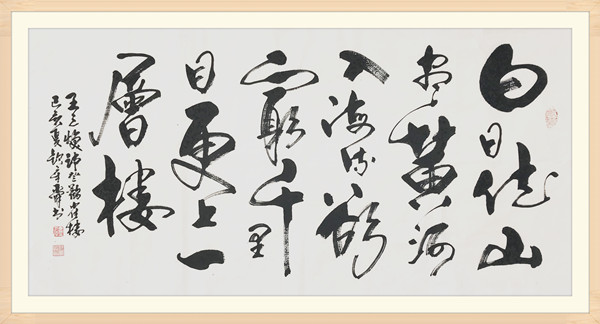 白日依山
尽黄河
入海流欲
窮千里
目更上一
層楼
王之焕诗登鹳雀楼
己亥夏